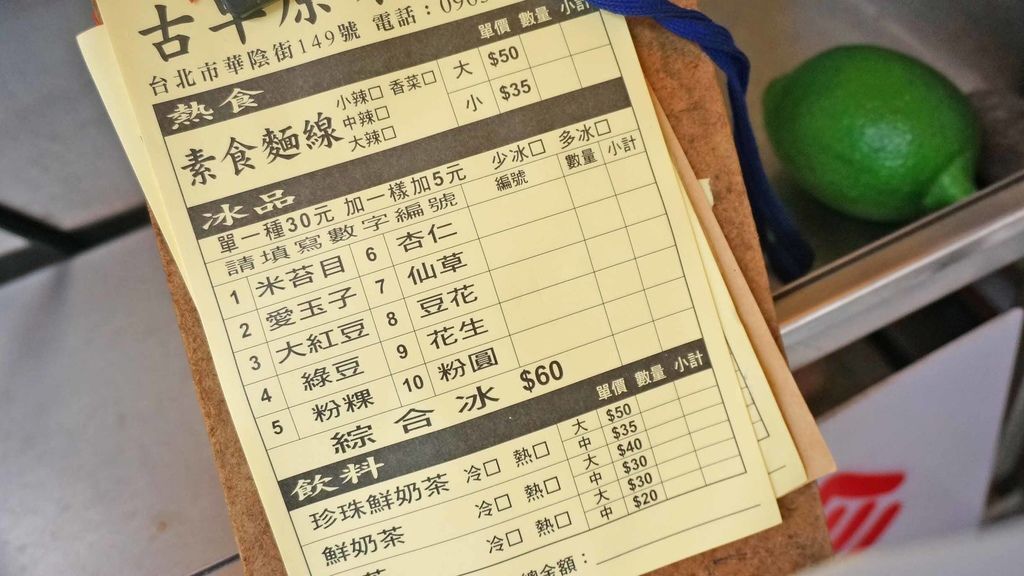 古早
台北市華陰街149號 電話：090
熱食 單價 數量 小計
素食麵線 小辣□ 香菜□ 中辣□ 大辣□ 大 $50
小 $35
冰品
單一種30元 加一樣加5元 少冰□ 多冰□
請填寫數字編號 編號 數量 小計
1 米苔目 6 杏仁
2 愛玉子 7 仙草
3 大紅豆 8 豆花
4 綠豆 9 花生
5 粉粿 10 粉圓
綜合冰 $60
飲料 單價 數量 小計
珍珠鮮奶茶 冷□ 熱□ 大 $50
中 $35
鮮奶茶 冷□ 熱□ 大 $40
中 $30
茶 冷□ 熱□ 大 $30
中 $20
總金額：